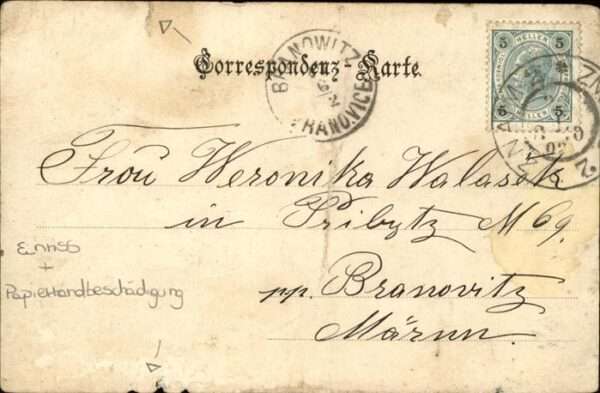 Correspondenz-Karte.
BRANOWITZ
VRANOVICE
5 HELLER 5
5 5
ZN
Frou Weronika Walasek
in Pribytz M 69.
pp. Branovitz
Märnn.
Einriss
+
Papierrandbeschädigung